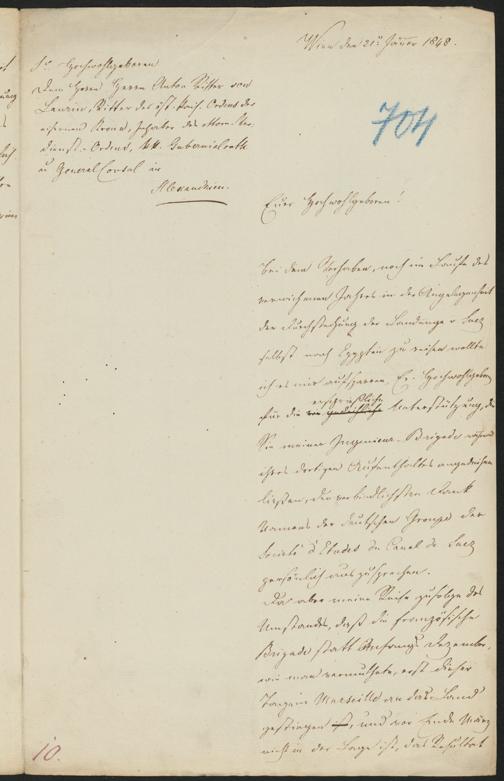 Wien den 21n Jänner 1848.
704
Sr Hochwohlgeboren
Dem Herrn Herrn Anton Ritter von
Laurin, Ritter des öst. kais. Ordens der
eisernen Krone, Inhaber des
dienst-Ordens, kk. Gubernialrath
u General Consul in
Alexandrien.
Euer Hochwohlgeboren!
Bei dem Vorhaben, noch im Laufe des
verwichenen Jahres in der Angelegenheit
der Durchstechung der Landenge v Suez
selbst nach Egypten zu reisen wollte
ich es mir aufsparen, Er. Hochwohlgeboren
ersprießliche
für die Unterstützung, die
Sie meiner Ingenieur-Brigade während
ihres dortigen Aufenthaltes angedeihen
ließen, den verbindlichsten Dank
Namens der deutschen Groupe der
Société d'Etudes du Canal de Suez
persönlich auszusprechen.
Da aber meine Reise zufolge des
Umstandes, daß die französische
Brigade statt Anfangs Dezember,
wie man vermuthete, erst dieser
Tage in Marseille an das Land
gestiegen ist, und vor Ende März
nicht in der Lage ist, das Resultat
10.